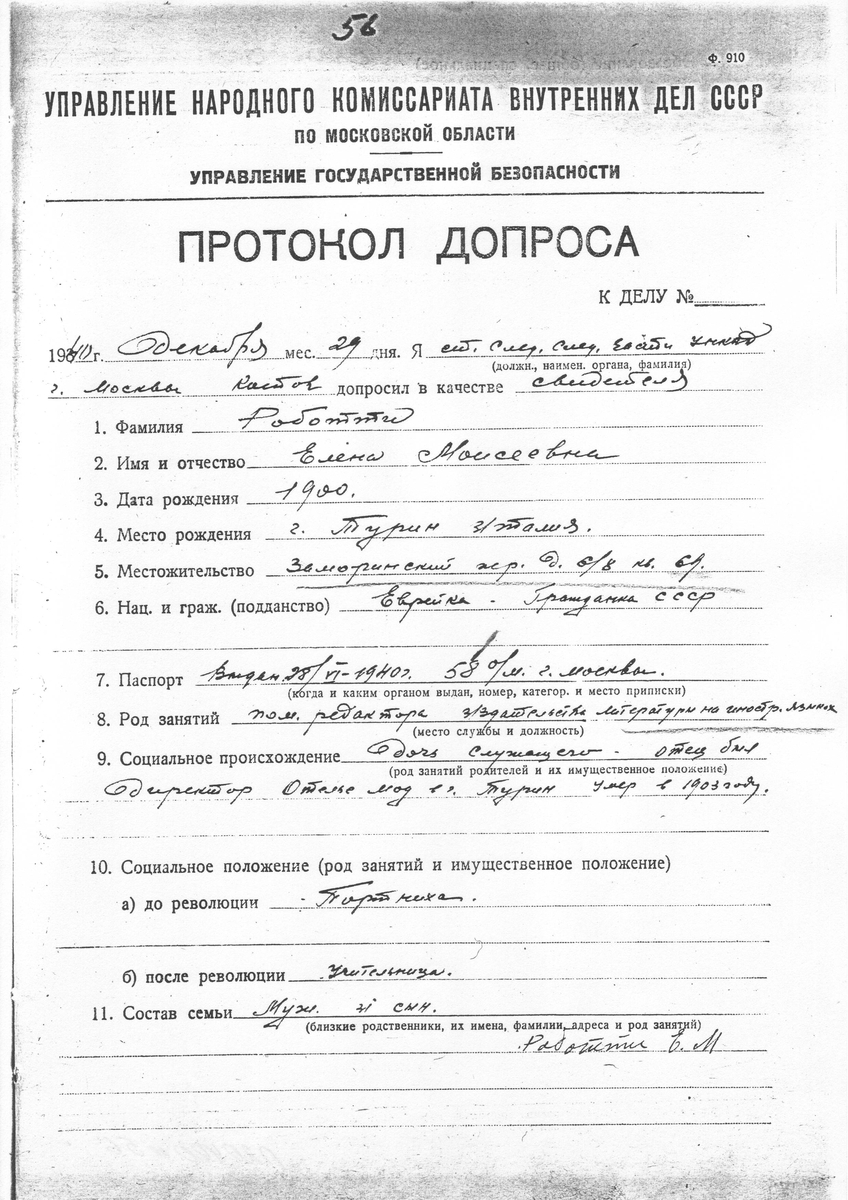 56
Ф. 910
УПРАВЛЕНИЕ НАРОДНОГО КОМИССАРИАТА ВНУТРЕННИХ ДЕЛ СССР
ПО МОСКОВСКОЙ ОБЛАСТИ
УПРАВЛЕНИЕ ГОСУДАРСТВЕННОЙ БЕЗОПАСНОСТИ
ПРОТОКОЛ ДОПРОСА
К ДЕЛУ №
1940 г. Декабря мес. 29 дня. Я ст. след. след. части УНКВД
(должн., наимен. органа, фамилия)
г. Москвы допросил в качестве свидетеля
1. Фамилия Роботти
2. Имя и отчество Елена Моисеевна
3. Дата рождения 1900.
4. Место рождения г. Турин Италия.
5. Местожительство пер. д. 6/8 кв. 69.
6. Нац. и граж. (подданство) Еврейка - Гражданка СССР
7. Паспорт Выдан 28/VI-1940 г. 58 о/м. г. Москвы.
(когда и каким органом выдан, номер, категор. и место приписки)
8. Род занятий пом. редактора Издательства литературы на иностр. языках
(место службы и должность)
9. Социальное происхождение Дочь служащего - отец был
(род занятий родителей и их имущественное положение)
Директор Отелье мод в г. Турин умер в 1903 году.
10. Социальное положение (род занятий и имущественное положение)
а) до революции Портниха.
б) после революции Учительница.
11. Состав семьи Муж. и сын.
(близкие родственники, их имена, фамилии, адреса и род занятий)
Роботти Е. М